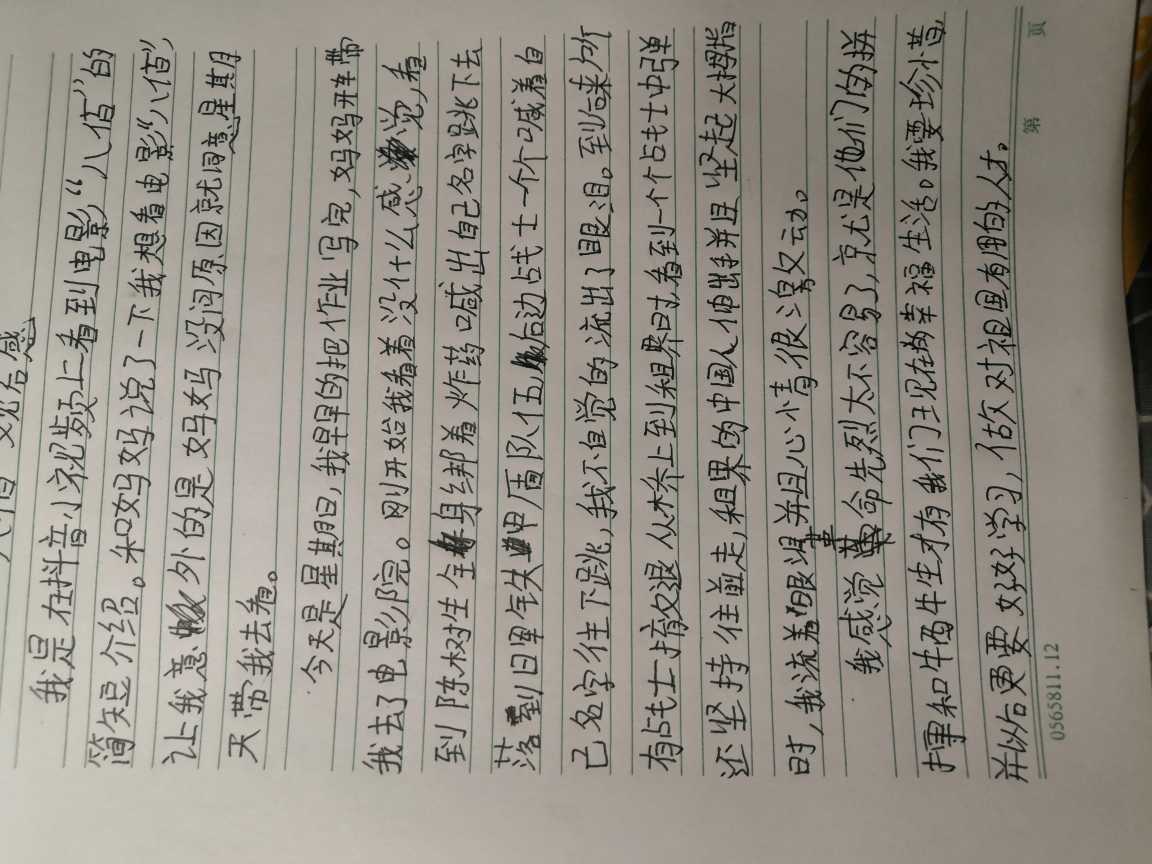 八佰 观后感
我是在抖音小视频上看到电影“八佰”的
简短介绍。和妈妈说了一下我想看电影“八佰”,
让我意外的是妈妈没问原因就同意星期
天带我去看。
今天是星期日,我早早的把作业写完,妈妈开车带
我去了电影院。刚开始我看着没什么感觉,看
到陈树生全身绑着炸药喊出自己名字跳下去
落到日军铁甲盾队伍后边战士一个个喊着自
己名字往下跳,我不自觉的流出了眼泪。到后来所
有战士撤退从桥上到租界时,看到一个个战士中弹
还坚持往前走,租界的中国人伸出手并且竖起大拇指
时,我流着眼泪并且心情很激动。
我感觉革命先烈太不容易了,就是他们的拼
搏和牺牲才有我们现在的幸福生活。我要珍惜,
并以后更要好好学习,做对祖国有用的人才。
第 页
0565811.12